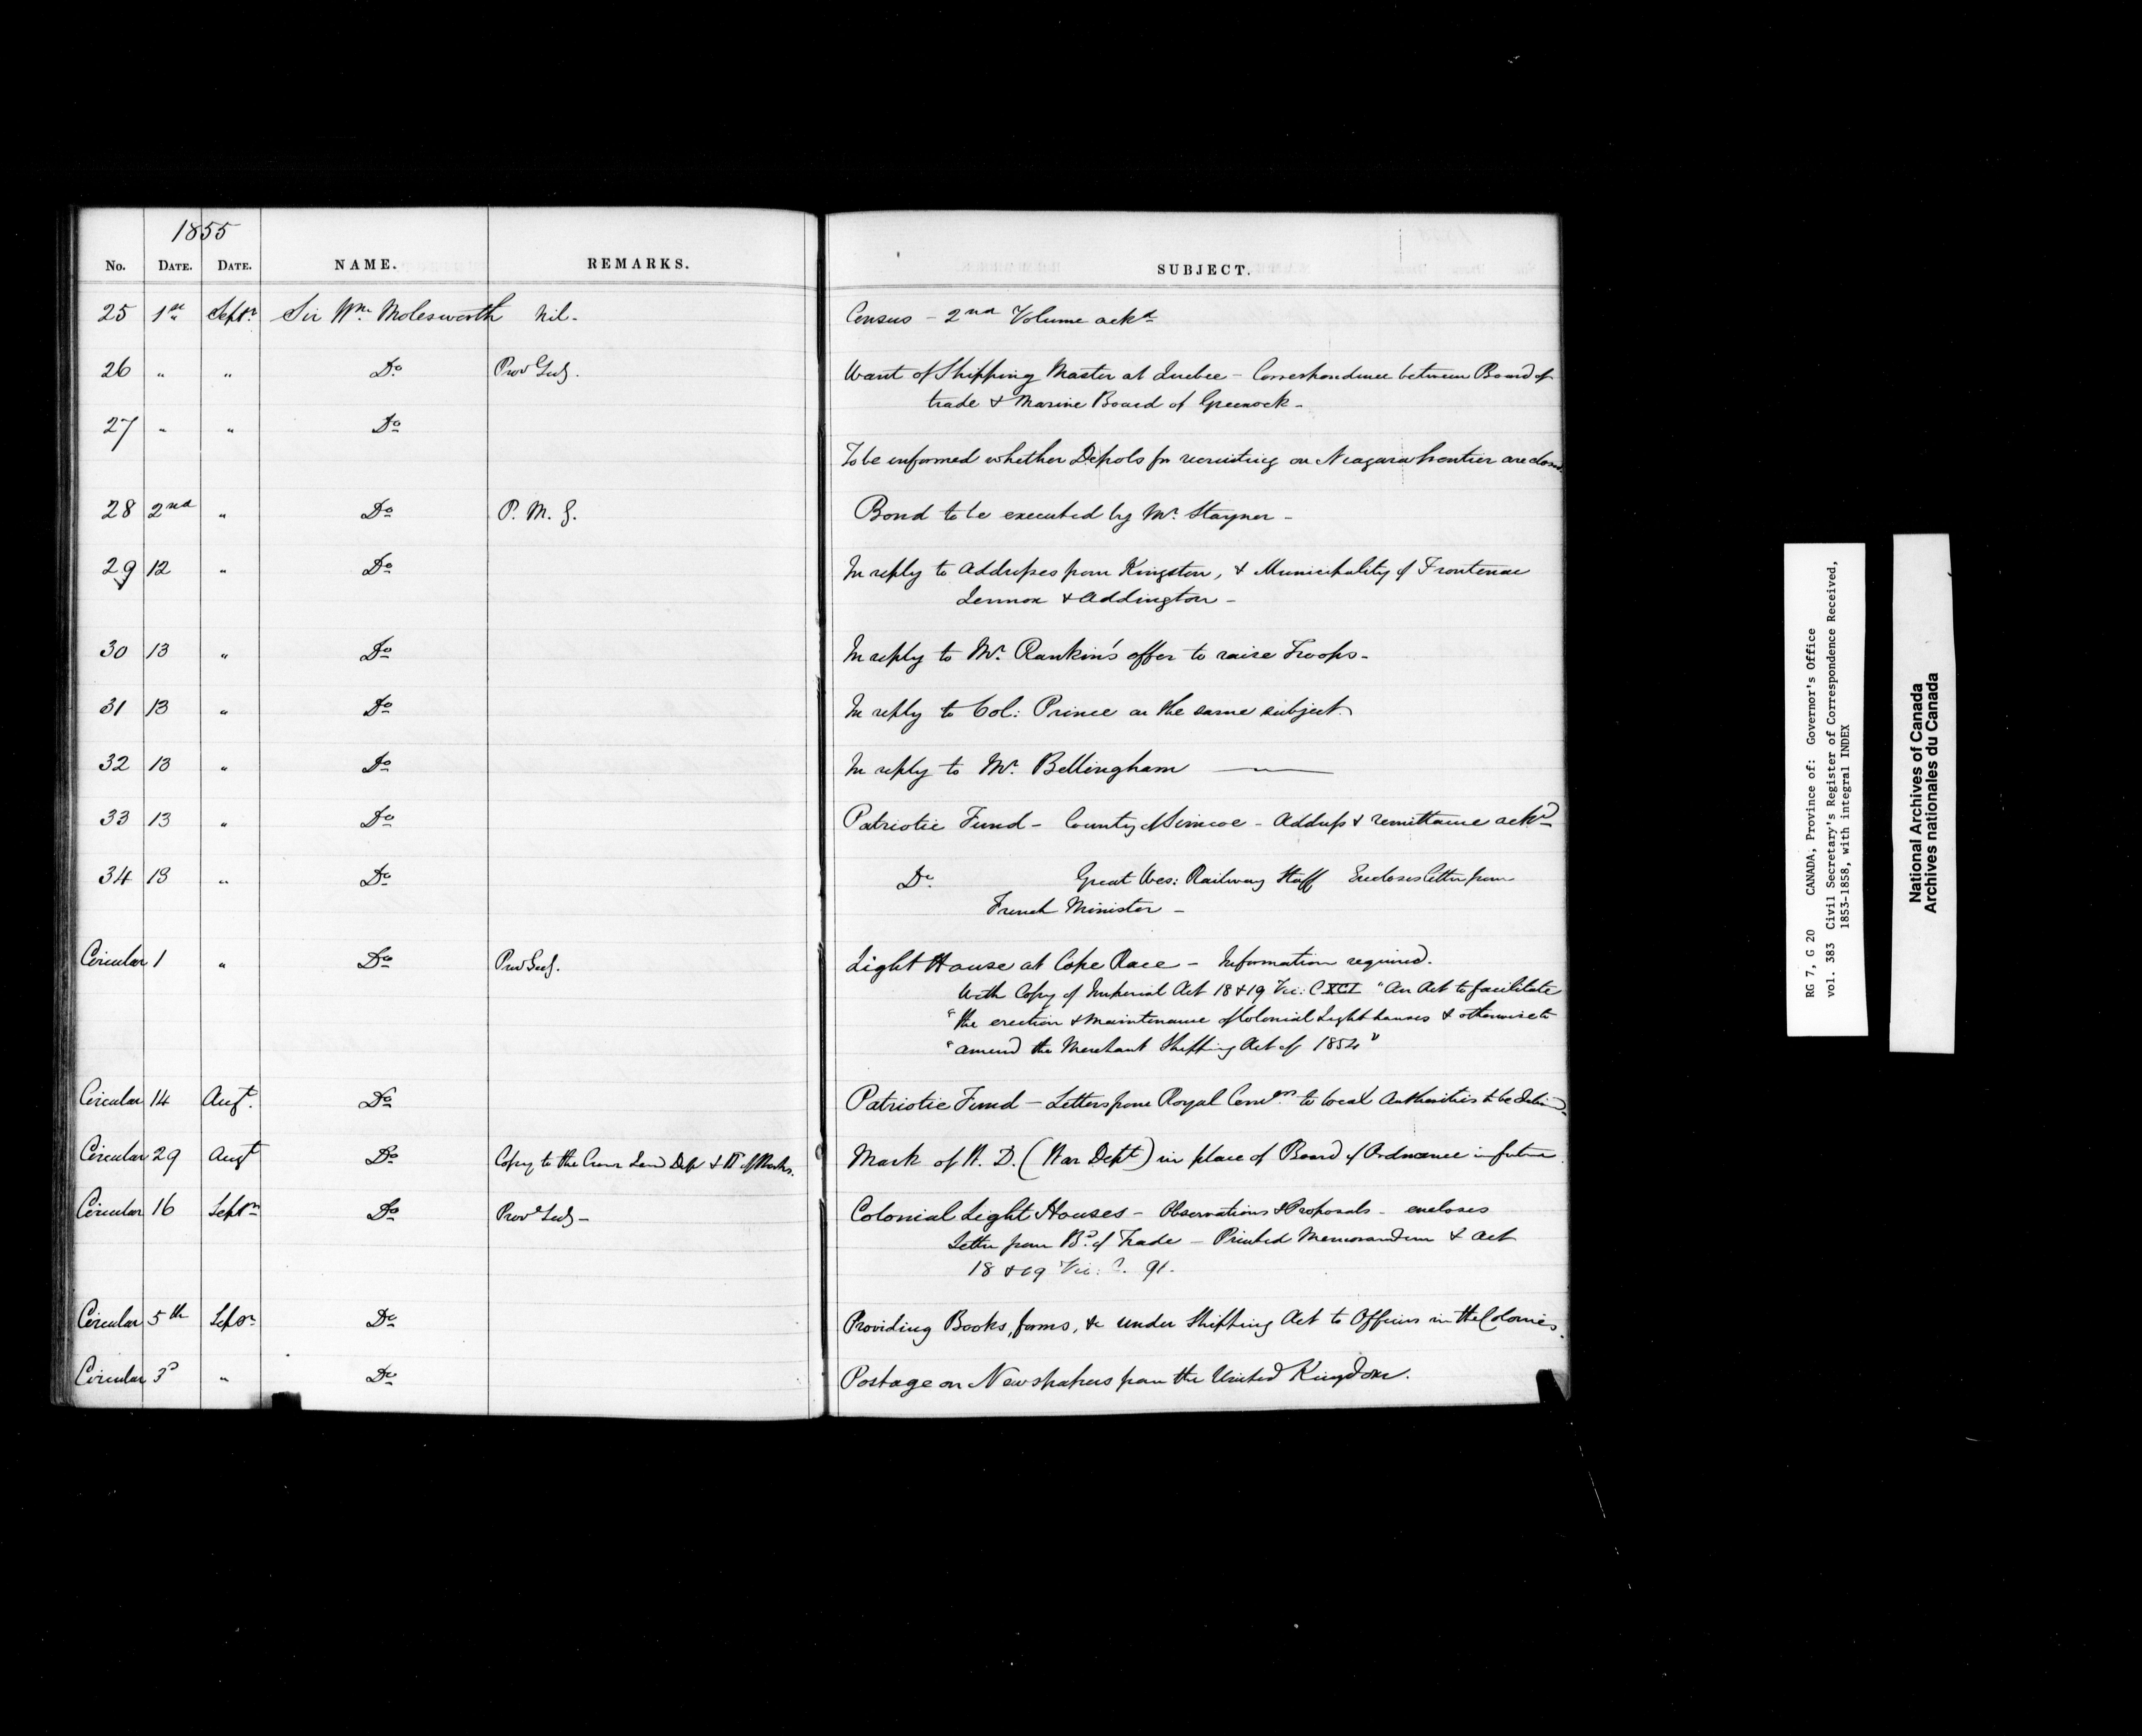 1855
No. DATE. DATE. NAME. REMARKS. SUBJECT.
25 1st Septr Sir Wm Molesworth Nil- Census - 2nd Volume ackd
26 " " Do Prov Secy. Want of Shipping Master at Quebec - Correspondence between Board of
trade & Marine Board of Greenock-
27 " " Do
To be informed whether Depots for recruiting on Niagara frontier are closed
28 2nd " Do P. M. G. Bond to be executed by Mr. Stayner-
29 12 " Do In reply to Addresses from Kingston, & Municipality of Frontenac
Lennox & Addington-
30 13 " Do In reply to Mr. Rankin's offer to raise Troops-
31 13 " Do In reply to Col: Prince on the same subject.
32 13 " Do In reply to Mr. Bellingham ——
33 13 " Do Patriotic Fund- County of Simcoe - Address & remittance ackd
34 13 " Do Do. Great Wes: Railway Staff Encloses letter from
French Minister-
Circular 1 " Do Prov Secy. Light House at Cape Race - Information required.
With Copy of Imperial Act 18 & 19 Vic: C XCI "An Act to facilitate
"the erection & maintenance of Colonial Light houses & otherwise to
"amend the Merchant Shipping Act of 1854"
Circular 14 Augt. Do Patriotic Fund - Letters from Royal Comrs. to local Authorities to be
Circular 29 Augt Do Copy to the Crown Land Dept & Bd of Works. Mark of W. D. (War Dept) in place of Board of Ordnance in future
Circular 16 Septr Do Provl Secy- Colonial Light Houses - Observations & Proposals - encloses
Letter from Bd. of Trade - Printed Memorandum & Act
18 & 19 Vic: C. 91.
Circular 5th Septr Do Providing Books, forms, &c under Shipping Act to Officers in the Colonies.
Circular 3d " Do Postage on Newspapers from the United Kingdom.
RG 7, G 20 CANADA, Province of: Governor's Office
vol. 383 Civil Secretary's Register of Correspondence Received,
1853-1858, with integral INDEX
National Archives of Canada
Archives nationales du Canada